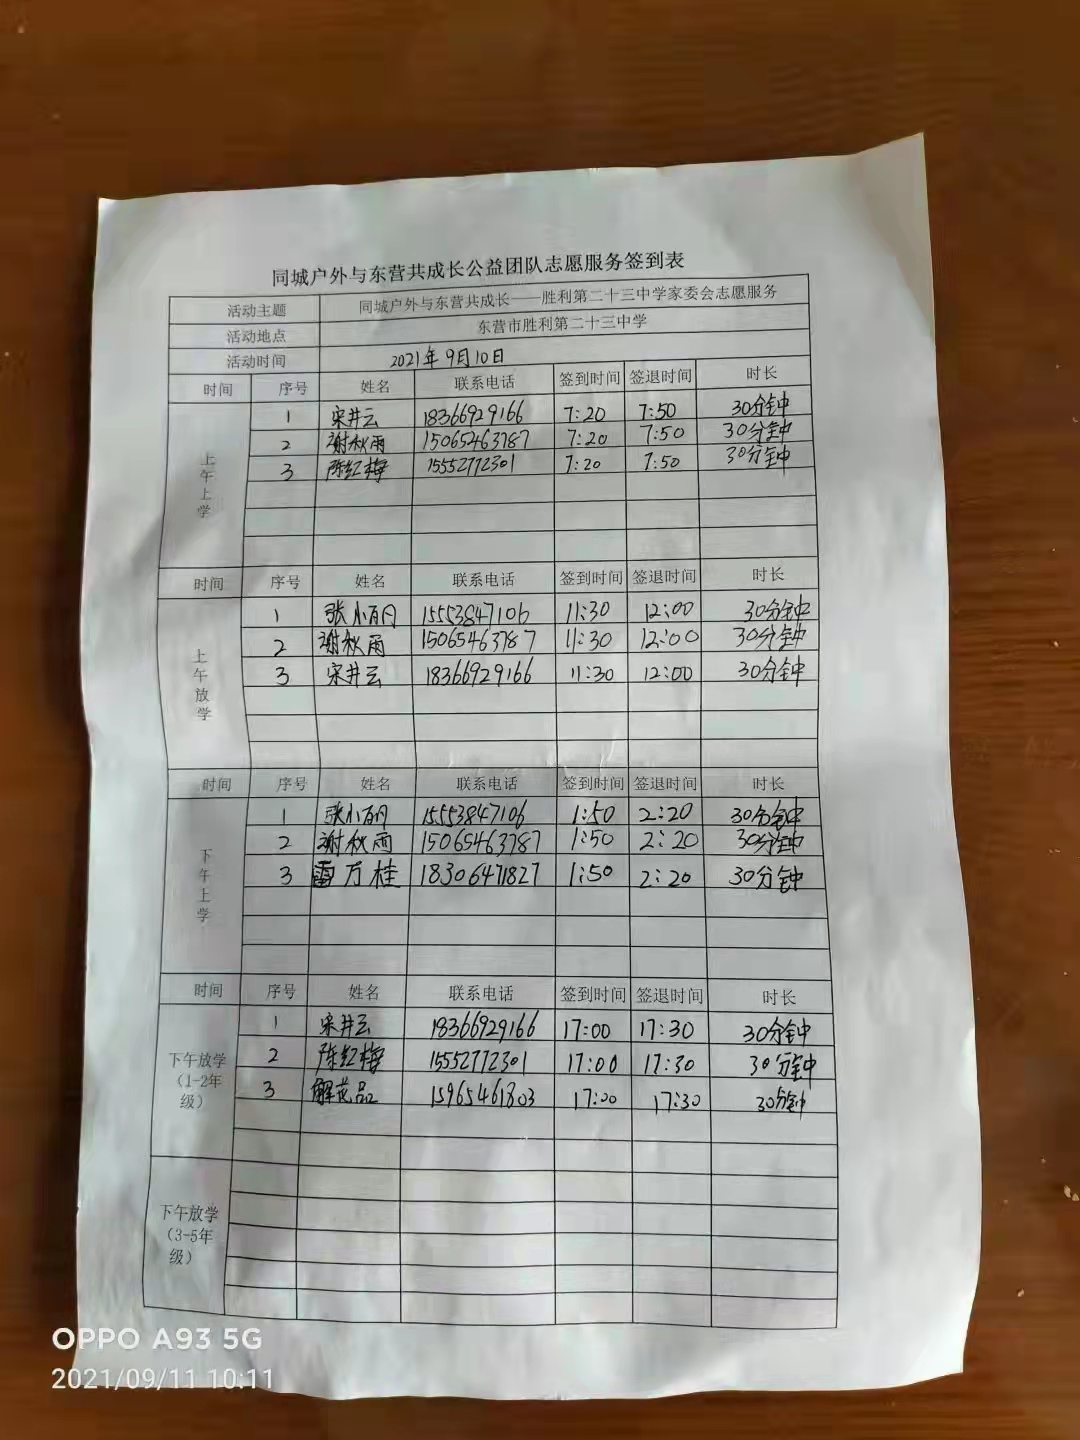 同城户外与东营共成长公益团队志愿服务签到表
活动主题 同城户外与东营共成长——胜利第二十三中学家委会志愿服务
活动地点 东营市胜利第二十三中学
活动时间 2021年9月10日
时间 序号 姓名 联系电话 签到时间 签退时间 时长
上午上学
1 宋井云 18366929166 7:20 7:50 30分钟
2 谢秋雨 15065463787 7:20 7:50 30分钟
3 陈红梅 15552772301 7:20 7:50 30分钟
时间 序号 姓名 联系电话 签到时间 签退时间 时长
上午放学
1 张小丽 15553847106 11:30 12:00 30分钟
2 谢秋雨 15065463787 11:30 12:00 30分钟
3 宋井云 18366929166 11:30 12:00 30分钟
时间 序号 姓名 联系电话 签到时间 签退时间 时长
下午上学
1 张小丽 15553847106 1:50 2:20 30分钟
2 谢秋雨 15065463787 1:50 2:20 30分钟
3 雷万桂 18306471827 1:50 2:20 30分钟
时间 序号 姓名 联系电话 签到时间 签退时间 时长
下午放学
（1-2年
级）
1 宋井云 18366929166 17:00 17:30 30分钟
2 陈红梅 15552772301 17:00 17:30 30分钟
3 解花品 15965461803 17:00 17:30 30分钟
下午放学
（3-5年
级）
OPPO A93 5G
2021/09/11 10:11